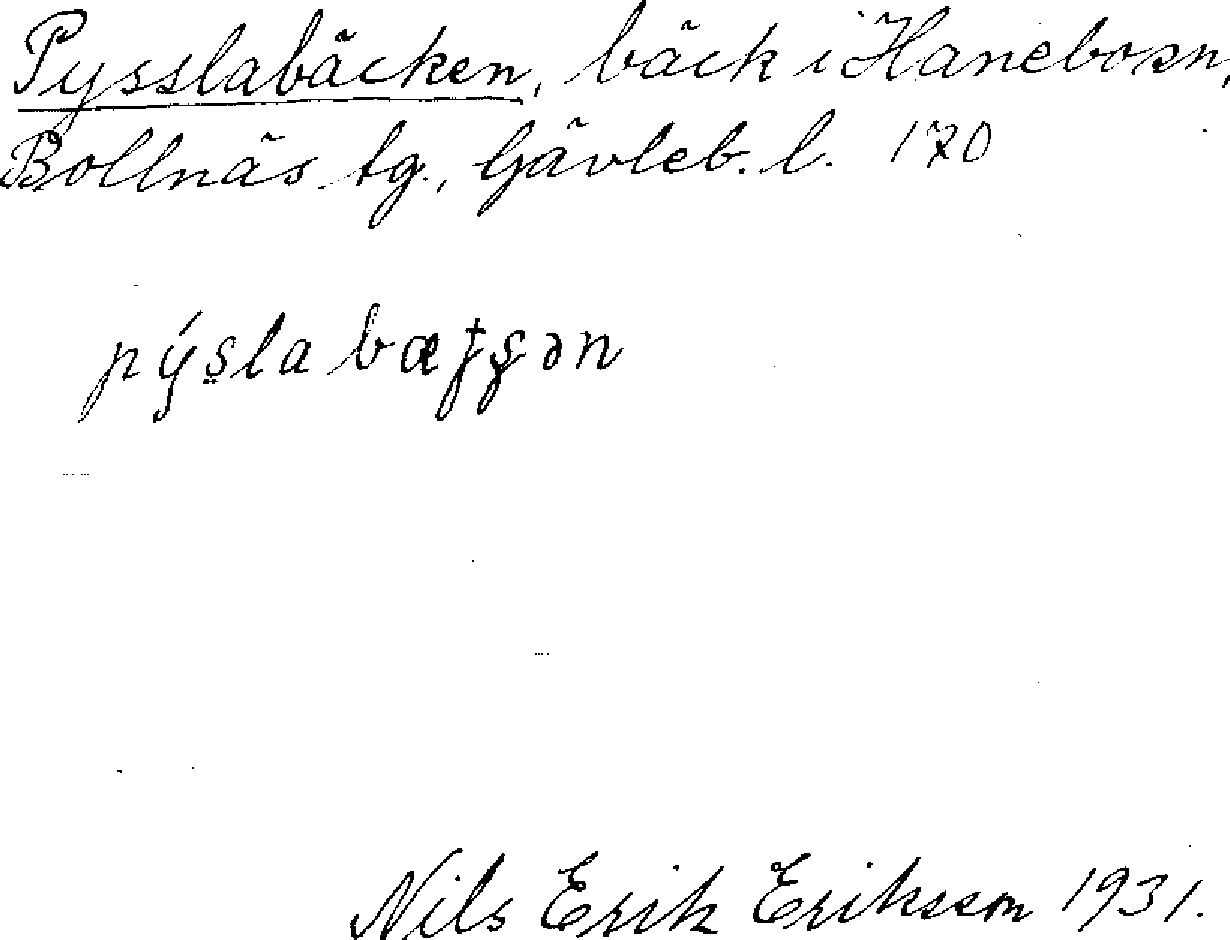 Pysslabäcken, bäck i Hanebo sn,
Bollnäs tg., Gävleb. l. 170
Nils Erik Eriksson 1931.